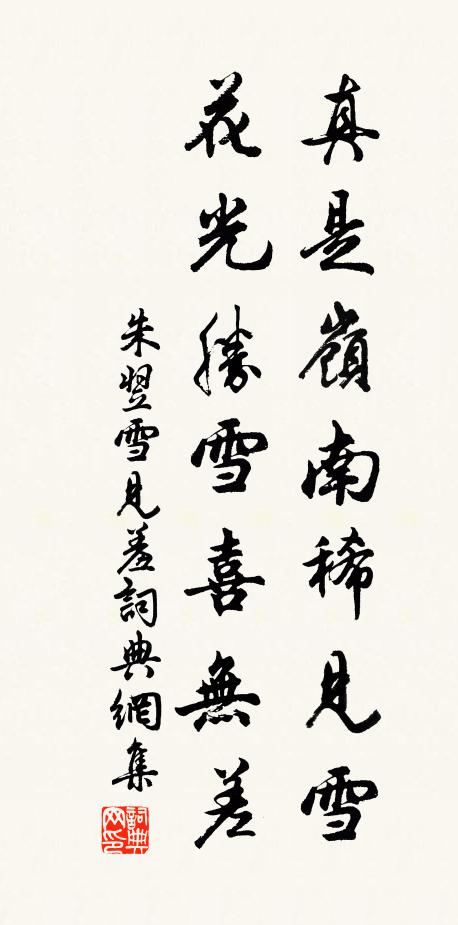 真是嶺南稀見雪
花光勝雪喜無差
朱翌雪見羞詞典網集
詞典网印